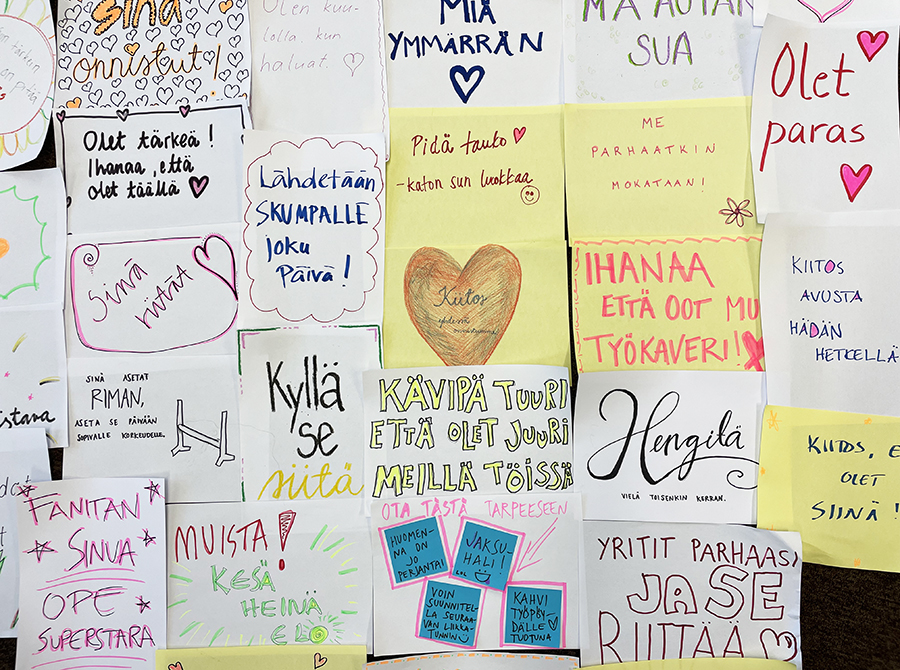 Sinä
onnistut!
Olen kuu-
lolla kun
haluat.
MIÄ
YMMÄRRÄN
MÄ AUTAN
SUA
Olet
paras
Olet tärkeä!
Ihanaa, että
olet täällä
Lähdetään
SKUMPALLE
joku
Päivä!
Pidä tauko
-katon sun luokkaa
ME
PARHAATKIN
MOKATAAN!
Sinä
riität
Kiitos
yhdessä
IHANAA
ETTÄ OOT MU
TYÖKAVERI!
KIITOS
AVUSTA
HÄDÄN
HETKELLÄ
SINÄ ASETAT
RIMAN,
ASETA SE PÄIVÄÄN
SOPIVALLE KORKEUDELLE.
Kyllä
se
siitä
KÄVIPÄ TUURI
ETTÄ OLET JUURI
MEILLÄ TÖISSÄ
Hengitä
VIELÄ TOISENKIN KERRAN.
KIITOS, E
OLET
SIINÄ!
FANITAN
SINUA
OPE
SUPERSTARA
MUISTA!
KESÄ
HEINÄ
ELO
OTA TÄSTÄ TARPEESEEN
HUOMEN-
NA ON
JO
PERJANTAI
JAKSU-
HALI!
LOL
VOIN
SUUNNITEL-
LA SEURAA-
VAN LIIKKA-
TUNNIN
KAHVI
TYÖPÖY-
DÄLLE
TUOTUNA
YRITIT PARHAASI
JA SE
RIITTÄÄ